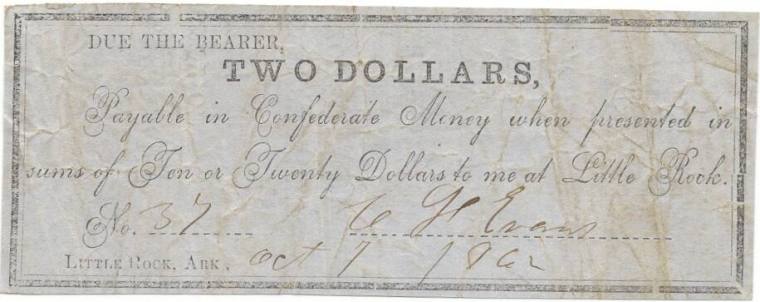 DUE THE BEARER,
TWO DOLLARS,
Payable in Confederate Money when presented in
sums of Ten or Twenty Dollars to me at Little Rock.
No. 37 C H Evans
LITTLE ROCK, ARK, Oct 7 1862